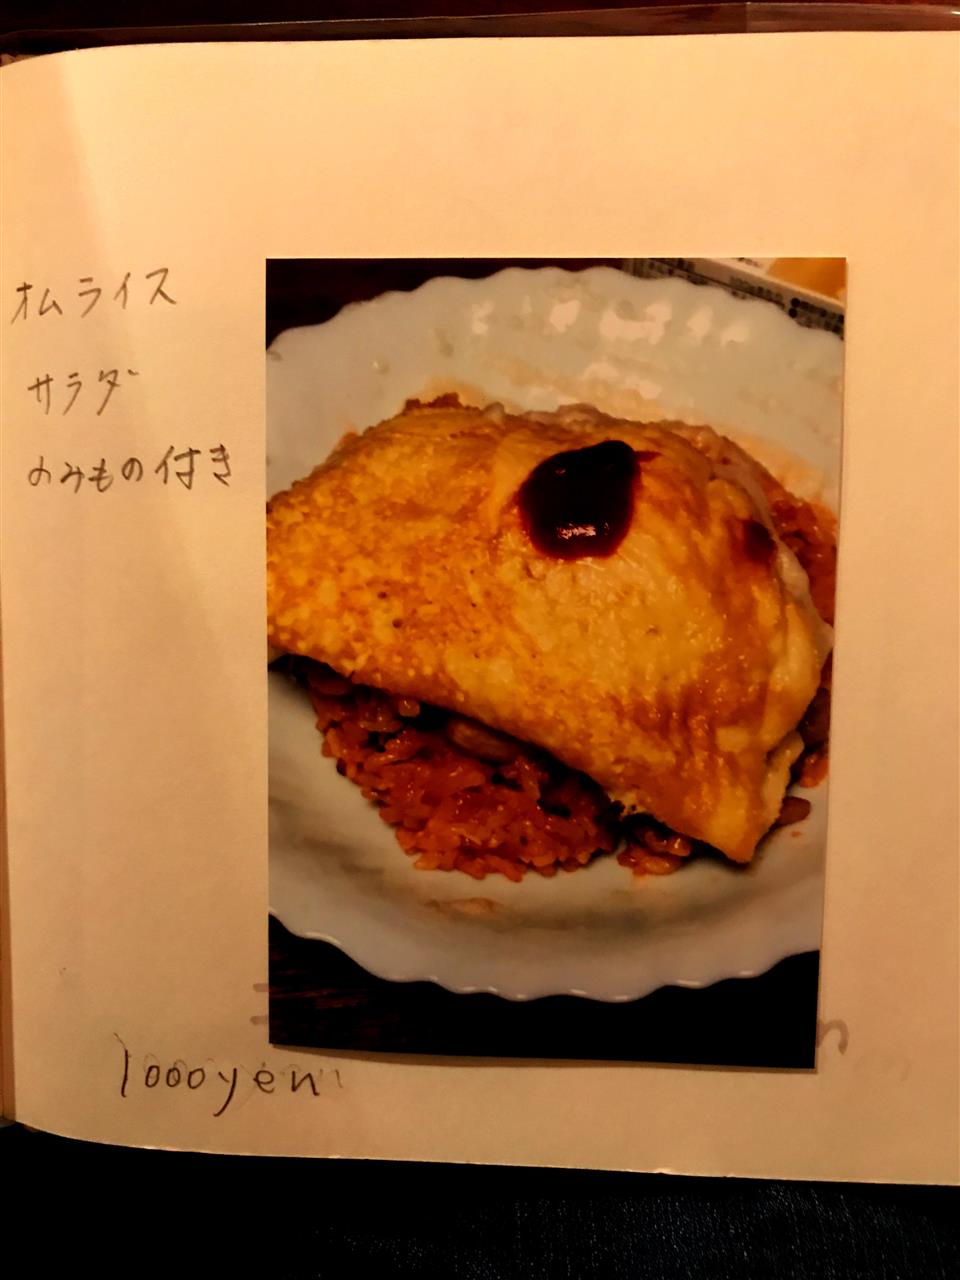 オムライス
サラダ
のみもの付き
1000yen